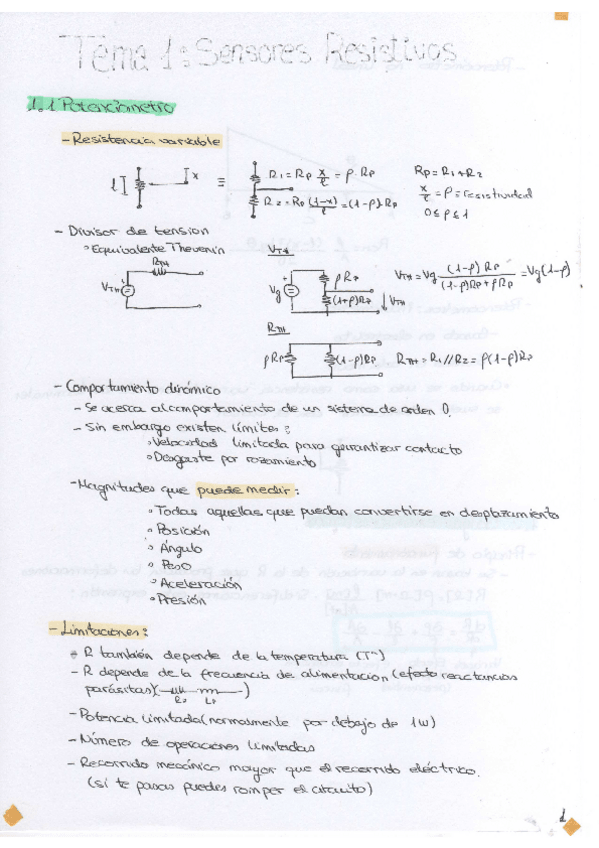 Tema 1: Sensores Resistivos
1.1 Potenciometro
- Resistencia variable
l x ≡ R1 = Rp x/l = ρ·Rp
R2 = Rp (1-x)/l = (1-ρ)·Rp
Rp = R1 + R2
x/l = ρ = resistividad
0 ≤ ρ ≤ 1
- Divisor de tension
° Equivalente Thevenin
RTH
VTH
VTH
Vg ρRp (1+ρ)Rp VTH
VTH = Vg (1-ρ)Rp / (1-ρ)Rp + ρRp = Vg(1-ρ)
RTH
ρRp (1-ρ)Rp RTH = R1//R2 = ρ(1-ρ)Rp
- Comportamiento dinámico
- Se acerca al comportamiento de un sistema de orden 0.
- Sin embargo existen límites:
° Velocidad limitada para garantizar contacto
° Desgaste por rozamiento
- Magnitudes que puede medir:
° Todas aquellas que puedan convertirse en desplazamiento
° Posición
° Ángulo
° Peso
° Aceleración
° Presión
- Limitaciones:
- R también depende de la temperatura (Tª)
- R depende de la frecuencia de alimentacion (efecto reactancias
parásitas)
- Potencia limitada (normalmente por debajo de 1W)
- Número de operaciones limitadas
- Recorrido mecánico mayor que el recorrido eléctrico.
(si te pasas puedes romper el circuito)
1